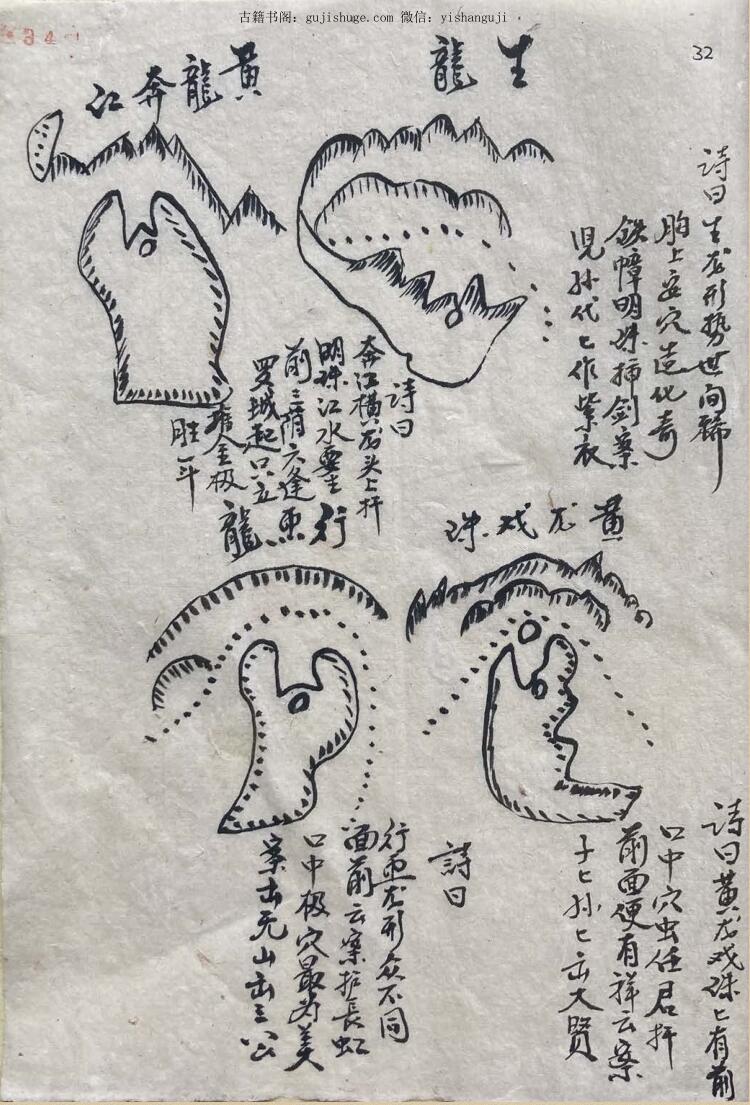 古籍书阁：gujishuge.com 微信：yishanguji
34
32
生龍
詩曰生龙形势世间稀
胎上安穴造化奇
鉄幛明珠插剑案
児孙代〻作紫衣
黄龍奔江
詩曰
奔江横龙头上扦
明珠江水要
前三阴六逢
罗城起只五
堆金极
胜斗
黄龙戏珠
詩曰黄龙戏珠〻有前
口中穴虫任君扦
前面便有祥云案
子〻孙〻出大賢
行雨龍
詩曰
行雨龙形众不同
面前云案护長虹
口中极穴最为美
案出无山出三公